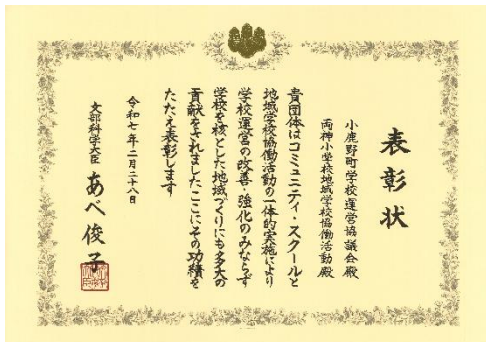 表彰状
小鹿野町学校運営協議会殿
両神小学校地域学校協働活動殿
貴団体はコミュニティ・スクールと
地域学校協働活動の一体的実施により
学校運営の改善・強化のみならず
学校を核とした地域づくりにも多大の
貢献をされましたここにその功績を
たたえ表彰します
令和七年二月二十八日
文部科学大臣 あべ俊子